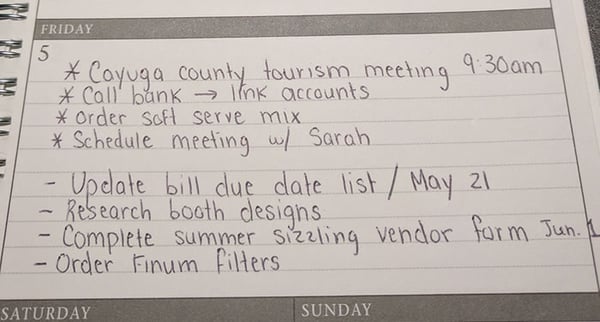 FRIDAY
5
* Cayuga county tourism meeting 9:30am
* Call bank → link accounts
* Order soft serve mix
* Schedule meeting w/ Sarah
- Update bill due date list / May 21
- Research booth designs
- Complete summer sizzling vendor form Jun. 1
- Order Finum filters
SATURDAY
SUNDAY